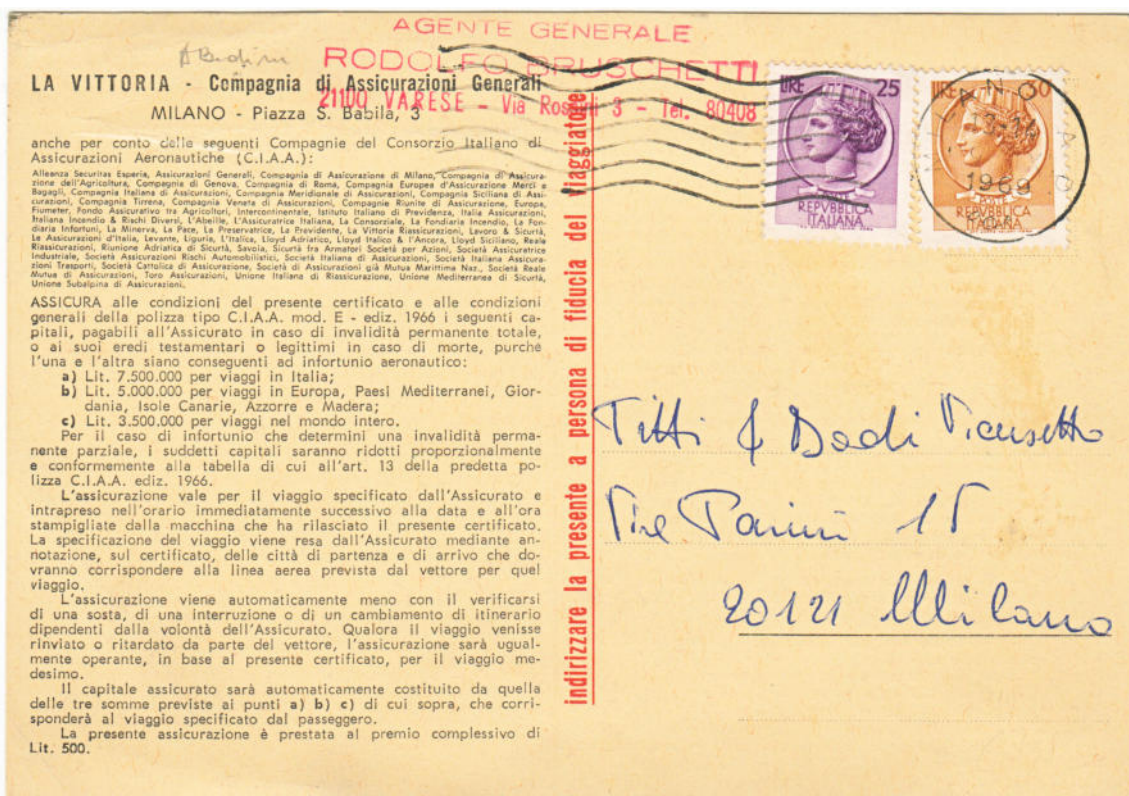 AGENTE GENERALE
RODOLFO BRUSCHETTI
21100 VARESE - Via Rosselli 3 - Tel. 80408
LA VITTORIA - Compagnia di Assicurazioni Generali
MILANO - Piazza S. Babila, 3
anche per conto delle seguenti Compagnie del Consorzio Italiano di
Assicurazioni Aeronautiche (C.I.A.A.):
Alleanza Securitas Esperia, Assicurazioni Generali, Compagnia di Assicurazione di Milano, Compagnia di Assicura-
zione dell'Agricoltura, Compagnia di Genova, Compagnia di Roma, Compagnia Europea d'Assicurazione Merci e
Bagagli, Compagnia Italiana di Assicurazioni, Compagnia Meridionale di Assicurazioni, Compagnia Siciliana di Assi-
curazioni, Compagnia Tirrena, Compagnia Veneta di Assicurazioni, Compagnie Riunite di Assicurazione, Europa,
Fiumeter, Fondo Assicurativo tra Agricoltori, Intercontinentale, Istituto Italiano di Previdenza, Italia Assicurazioni,
Italiana Incendio & Rischi Diversi, L'Abeille, L'Assicuratrice Italiana, La Consorziale, La Fondiaria Incendio, La Fon-
diaria Infortuni, La Minerva, La Pace, La Preservatrice, La Previdente, La Vittoria Riassicurazioni, Lavoro & Sicurtà,
Le Assicurazioni d'Italia, Levante, Liguria, L'Italica, Lloyd Adriatico, Lloyd Italico & l'Ancora, Lloyd Siciliano, Reale
Riassicurazioni, Riunione Adriatica di Sicurtà, Savoia, Sicurtà fra Armatori Società per Azioni, Società Assicuratrice
Industriale, Società Assicurazioni Rischi Automobilistici, Società Italiana di Assicurazioni, Società Italiana Assicura-
zioni Trasporti, Società Cattolica di Assicurazione, Società di Assicurazioni già Mutua Marittima Naz., Società Reale
Mutua di Assicurazioni, Toro Assicurazioni, Unione Italiana di Riassicurazione, Unione Mediterranea di Sicurtà,
Unione Subalpina di Assicurazioni.
ASSICURA alle condizioni del presente certificato e alle condizioni
generali della polizza tipo C.I.A.A. mod. E - ediz. 1966 i seguenti ca-
pitali, pagabili all'Assicurato in caso di invalidità permanente totale,
o ai suoi eredi testamentari o legittimi in caso di morte, purché
l'una e l'altra siano conseguenti ad infortunio aeronautico:
a) Lit. 7.500.000 per viaggi in Italia;
b) Lit. 5.000.000 per viaggi in Europa, Paesi Mediterranei, Gior-
dania, Isole Canarie, Azzorre e Madera;
c) Lit. 3.500.000 per viaggi nel mondo intero.
Per il caso di infortunio che determini una invalidità perma-
nente parziale, i suddetti capitali saranno ridotti proporzionalmente
e conformemente alla tabella di cui all'art. 13 della predetta po-
lizza C.I.A.A. ediz. 1966.
L'assicurazione vale per il viaggio specificato dall'Assicurato e
intrapreso nell'orario immediatamente successivo alla data e all'ora
stampigliate dalla macchina che ha rilasciato il presente certificato.
La specificazione del viaggio viene resa dall'Assicurato mediante an-
notazione, sul certificato, delle città di partenza e di arrivo che do-
vranno corrispondere alla linea aerea prevista dal vettore per quel
viaggio.
L'assicurazione viene automaticamente meno con il verificarsi
di una sosta, di una interruzione o di un cambiamento di itinerario
dipendenti dalla volontà dell'Assicurato. Qualora il viaggio venisse
rinviato o ritardato da parte del vettore, l'assicurazione sarà ugual-
mente operante, in base al presente certificato, per il viaggio me-
desimo.
Il capitale assicurato sarà automaticamente costituito da quella
delle tre somme previste ai punti a) b) c) di cui sopra, che corri-
sponderà al viaggio specificato dal passeggero.
La presente assicurazione è prestata al premio complessivo di
Lit. 500.
indirizzare la presente a persona di fiducia del viaggiatore
LIRE 25
POSTE
REPVBBLICA
ITALIANA
LIRE
POSTE
REPVBBLICA
ITALIANA
MILANO
1969
Titti & Dadi
Parini 15
20121 Milano